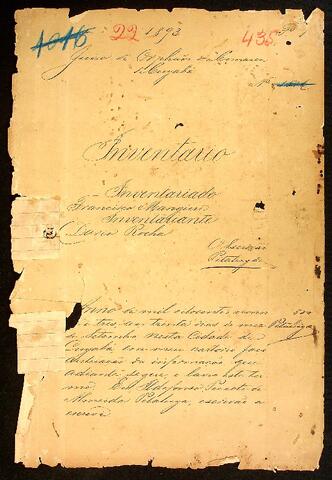 1016 22 1893 435
Juizo de Orphãos da Comarca
de Cuyabá
Inventario
Inventariado
Francisco
Inventariante
Rocha
O Escrivão
Pitaluga
Anno de mil oitocentos noven
ta e tres, aos trinta dias do mez
de Setembro nesta Cidade de
Cuyabá em meu cartorio faço
autuação da informação que
adiante segue, e lavro este ter
mo. Eu, Ildefonso
Almeida Pitaluga, escrivão o
escrevi